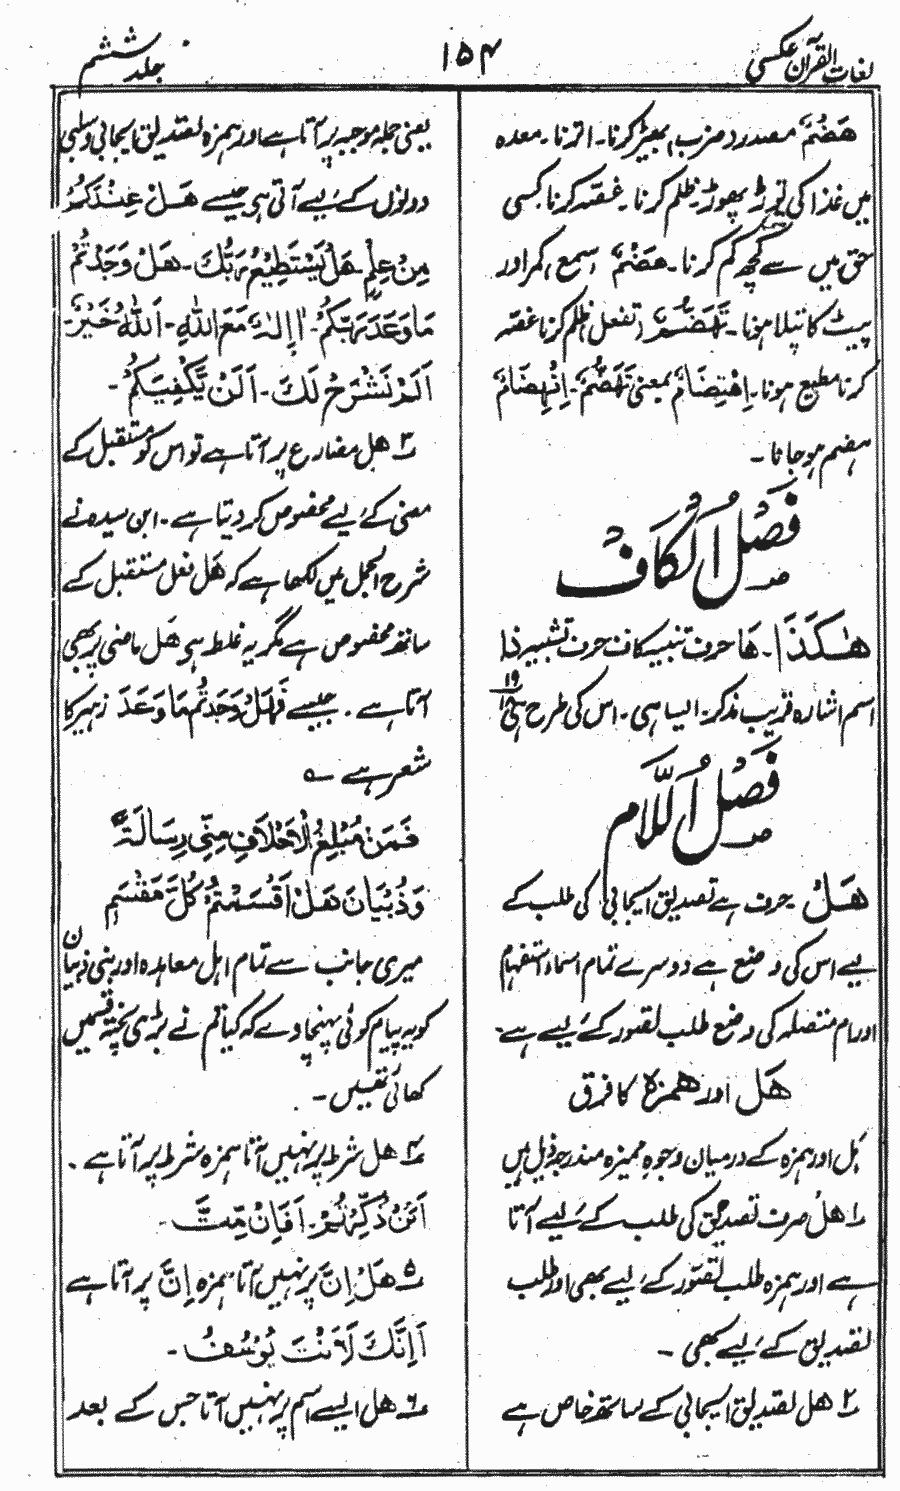 لغات القرآن عکسی
۱۵۴
جلد ششم
هَضْمٌ مصدر (ضرب) بھیڑ کرنا۔ اترنا۔ معدہ
میں غذا کی توڑ پھوڑ۔ ظلم کرنا۔ غصہ کرنا کسی
حق میں سے کچھ کم کرنا۔ هَضَمٌ (سمع) کمر اور
پیٹ کا پتلا ہونا۔ تَهَضُّمٌ (تفعل) ظلم کرنا غصہ
کرنا مطیع ہونا۔ اِهْتِضَامٌ بمعنی تَهَضُّمٌ۔ اِنْهِضَامٌ
ہضم ہو جانا۔
فصل الکاف
هٰکَذَا۔ ها حرف تنبیہ کاف حرف تشبیہ ذا
اسم اشارہ قریب مذکر۔ ایسا ہی۔ اس کی طرح ۱۹
فصل اللام
هَلْ۔ حرف ہے تصدیق ایجابی کی طلب کے
لیے اس کی وضع ہے دوسرے تمام اسماء استفہام
اور ام متصلہ کی وضع طلب تصور کے لیے ہے۔
هل اور همزہ کا فرق
ہل اور ہمزہ کے درمیان وجوہ ممیزہ مندرجہ ذیل ہیں
۱ هل صرف تصدیق کی طلب کے لیے آتا
ہے اور ہمزہ طلب تصور کے لیے بھی اور طلب
تصدیق کے لیے بھی۔
۲ هل تصدیق ایجابی کے ساتھ خاص ہے
یعنی جملہ موجبہ پر آتا ہے اور ہمزہ تصدیق ایجابی و سلبی
دونوں کے لیے آتی ہی جیسے هَلْ عِنْدَکُمْ
مِنْ عِلْمٍ۔ هَلْ یَسْتَطِیْعُ رَبُّكَ۔ هَلْ وَجَدْتُّمْ
مَا وَعَدَ رَبُّکُمْ۔ ءَاِلٰهٌ مَّعَ اللّٰهِ۔ آللّٰهُ خَیْرٌ۔
اَلَمْ نَشْرَحْ لَكَ۔ اَلَنْ یَّکْفِیَکُمْ۔
۳ هل مضارع پر آتا ہے تو اس کو مستقبل کے
معنی کے لیے مخصوص کر دیتا ہے۔ ابن سیدہ نے
شرح الجمل میں لکھا ہے کہ هل فعل مستقبل کے
ساتھ مخصوص ہے مگر یہ غلط ہی هل ماضی پر بھی
آتا ہے۔ جیسے فَهَلْ وَجَدْتُّمْ مَا وَعَدَ زہیر کا
شعر ہے ؎
فَمَنْ مُبْلِغُ الْاَحْلَافِ مِنِّی رِسَالَةً
وَذُبْیَانَ هَلْ اَقْسَمْتُمْ کُلَّ مَقْسَمِ
میری جانب سے تمام اہل معاہدہ اور بنی ذبیان
کو یہ پیام کوئی پہنچا دے کہ کیا تم نے بڑی پختہ قسمیں
کھائی تھیں۔
۴ هل شرط پر نہیں آتا ہمزہ شرط پر آتا ہے۔
اَئِنْ ذُکِّرْتُمْ۔ اَفَاِنْ مِّتَّ۔
۵ هل اِنَّ پر نہیں آتا ہمزہ اِنَّ پر آتا ہے
اَاِنَّكَ لَاَنْتَ یُوْسُفُ۔
۶ هل ایسے اسم پر نہیں آتا جس کے بعد